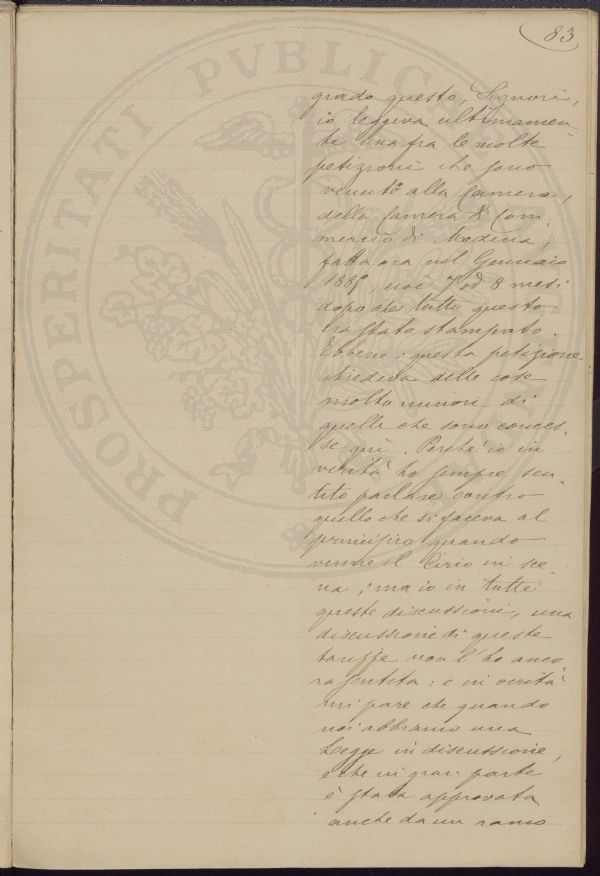 83
PROSPERITATI PVBLICAE
grado questo, Signori,
io leggeva ultimamen-
te una fra le molte
petizioni che sono
venute alla Camera,
della Camera di Com-
mercio di Modena,
fatta ora nel Gennaio
1885, cioè 7 od 8 mesi
dopo che tutto questo
era stato stampato.
Ebbene; questa petizione
chiedeva delle cose
molto minori di
quelle che sono conces-
se qui. Perchè io in
verità ho sempre sen-
tito parlare contro
quello che si faceva al
principio quando
venne il Cirio in sce-
na; ma io in tutte
queste discussioni, una
discussione di queste
tariffe non l'ho anco-
ra sentita: e in verità
mi pare che quando
noi abbiamo una
Legge in discussione,
e che in gran parte
è stata approvata
anche da un ramo